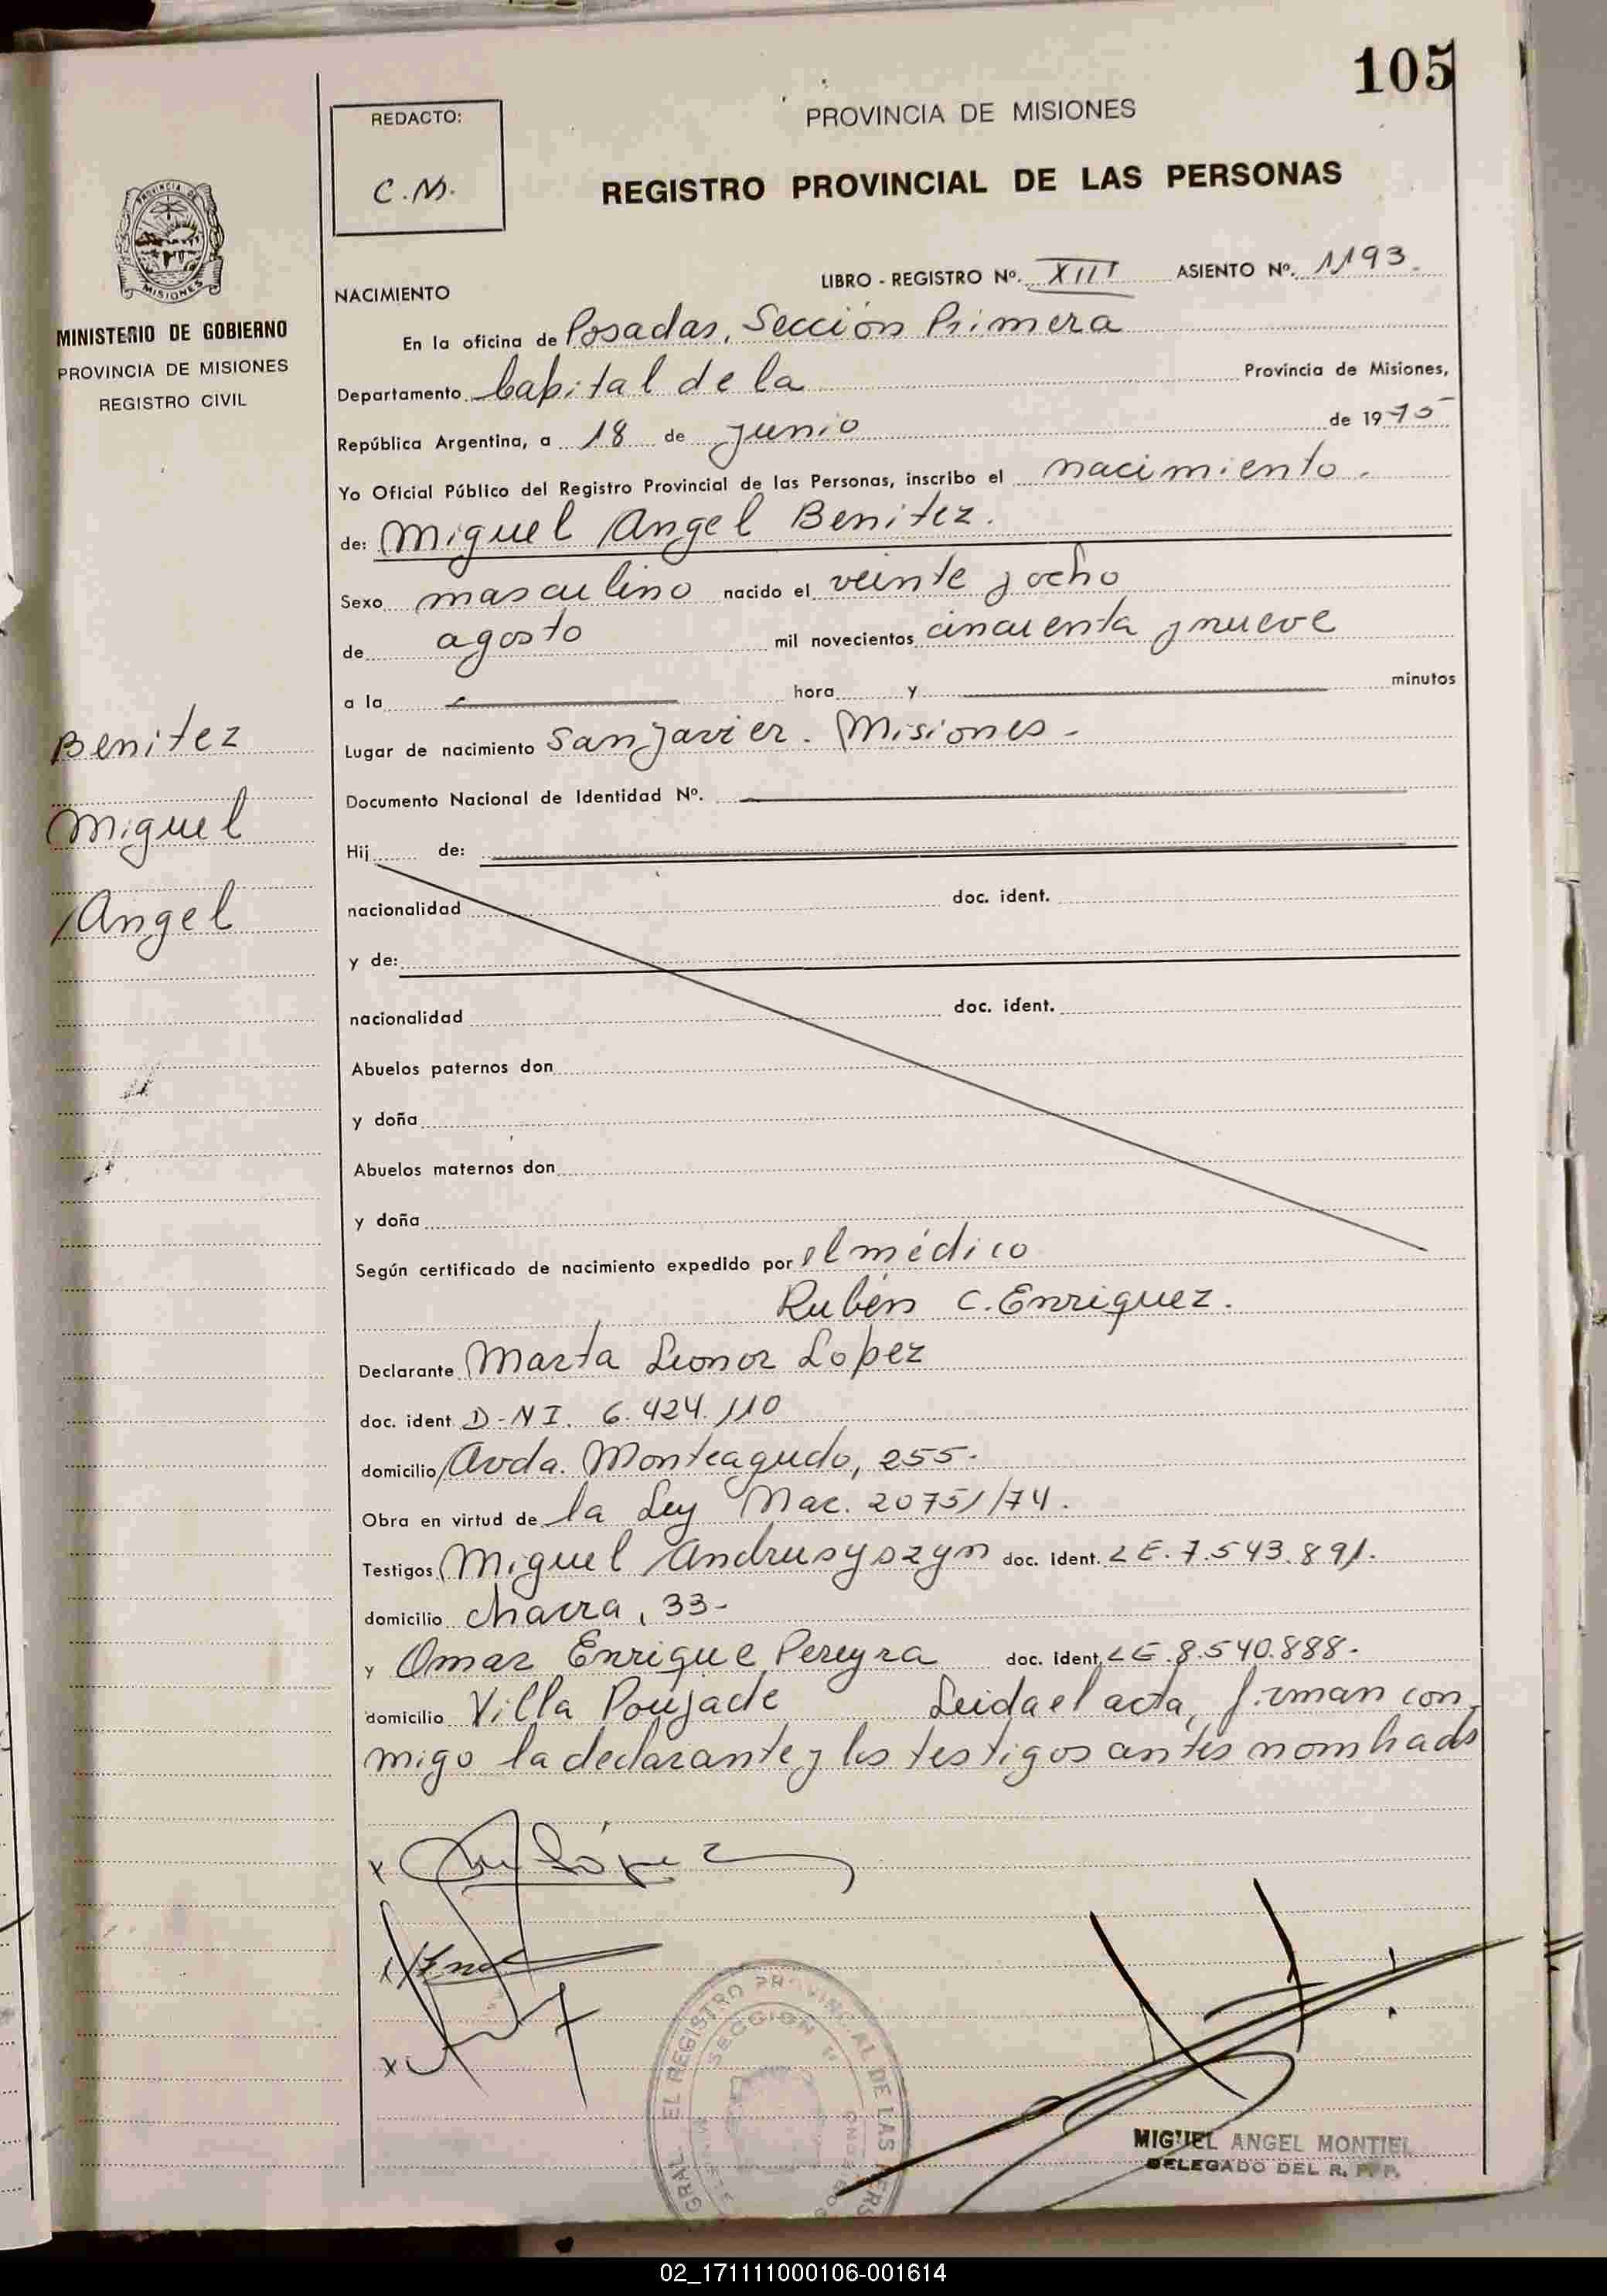 105
REDACTO:
C.M.
PROVINCIA DE MISIONES
REGISTRO PROVINCIAL DE LAS PERSONAS
PROVINCIA DE
MISIONES
MINISTERIO DE GOBIERNO
PROVINCIA DE MISIONES
REGISTRO CIVIL
LIBRO - REGISTRO Nº. XIII ASIENTO Nº. 1193.
NACIMIENTO
En la oficina de Posadas, Sección Primera
Departamento Capital de la Provincia de Misiones,
República Argentina, a 18 de junio de 1975
Yo Oficial Público del Registro Provincial de las Personas, inscribo el nacimiento.
de: Miguel Angel Benitez.
Sexo masculino nacido el veinte y ocho
de agosto mil novecientos cincuenta y nueve
a la hora y minutos
Lugar de nacimiento San Javier. Misiones -
Documento Nacional de Identidad Nº.
Hij de:
nacionalidad doc. ident.
y de:
nacionalidad doc. ident.
Abuelos paternos don
y doña
Abuelos maternos don
y doña
Según certificado de nacimiento expedido por el médico
Rubén C. Enriquez.
Declarante Marta Leonor Lopez
doc. ident D-NI. 6.424.110
domicilio Avda. Monteagudo, 255-
Obra en virtud de la Ley Nac. 20751/74.
Testigos Miguel Andrusyszyn doc. ident. LE. 7.543.891.
domicilio chacra, 33-
y Omar Enrique Pereyra doc. ident. LE. 8.540.888-
domicilio Villa Poujade Leida el acta, firman con
migo la declarante y los testigos antes nombrados
Benitez
Miguel
Angel
x López
x
x
EL REGISTRO PROVINCIAL DE LAS PERS
SECCION 1ª
MIGUEL ANGEL MONTIEL
DELEGADO DEL R. P. P.
02_171111000106-001614